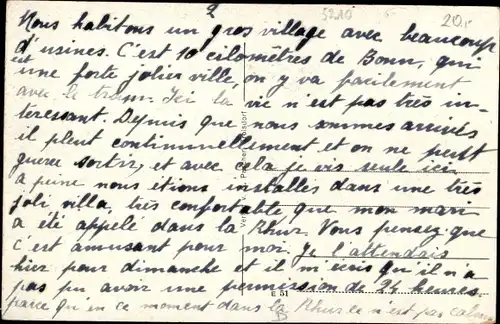 2
5210
20.-
Nous habitons un gros village avec beaucoup
d'usines. C'est 10 cilomètres de Bonn, qui
est
une forte jolier ville, on y va facilement
avec le tram. Ici la vie n'est pas très in-
teressant. Depuis que nous sommes arrivés
il pleut continuellement et on ne peut
guere sortir, et avec cela je vis seule ici
a peine nous étions installés dans une très
joli villa, très confortable que mon mari
a été appelé dans la Rhur. Vous pensez que
c'est amusant pour moi. Je l'attendais
hier pour dimanche et il m'ecris qu'il n'a
pas pu avoir une permission de 24 heures
E 51
parce qu'en ce moment dans la Rhur ce n'est pas calme